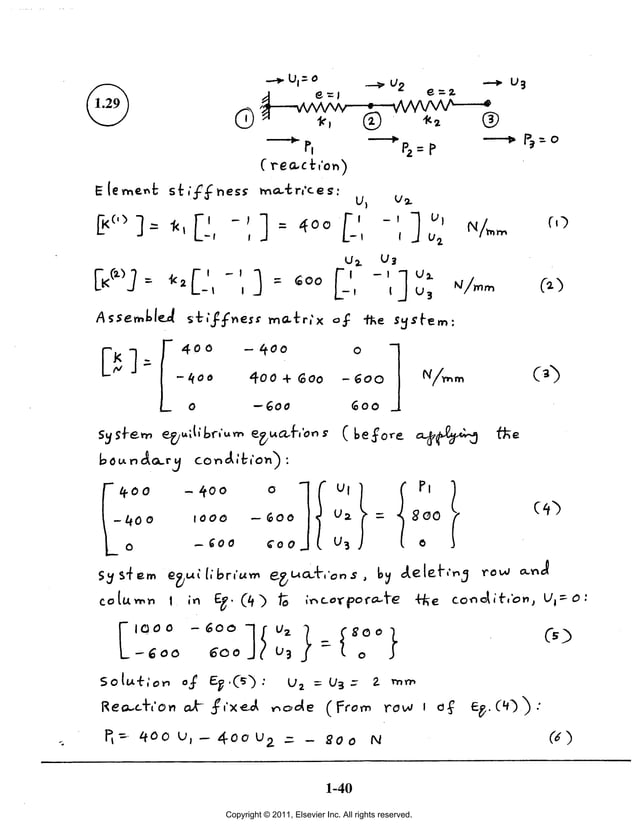 1.29
→ U₁=0 → U₂ → U₃
e=1 e=2
① k₁ ② k₂ ③
→ P₁ → P₂ = P → P₃ = 0
(reaction)
Element stiffness matrices:
U₁ U₂
[K⁽¹⁾] = k₁ [1 -1; -1 1] = 400 [1 -1; -1 1] U₁ U₂ N/mm (1)
U₂ U₃
[K⁽²⁾] = k₂ [1 -1; -1 1] = 600 [1 -1; -1 1] U₂ U₃ N/mm (2)
Assembled stiffness matrix of the system:
400 -400 0
[K] = -400 400 + 600 -600 N/mm (3)
0 -600 600
System equilibrium equations (before applying the
boundary condition):
400 -400 0 U₁ P₁
-400 1000 -600 U₂ = 800 (4)
0 -600 600 U₃ 0
System equilibrium equations, by deleting row and
column 1 in Eq. (4) to incorporate the condition, U₁=0:
1000 -600 U₂ 800
-600 600 U₃ = 0 (5)
Solution of Eq.(5): U₂ = U₃ = 2 mm
Reaction at fixed node (From row 1 of Eq.(4)):
P₁ = 400 U₁ - 400 U₂ = - 800 N (6)
1-40
Copyright © 2011, Elsevier Inc. All rights reserved.